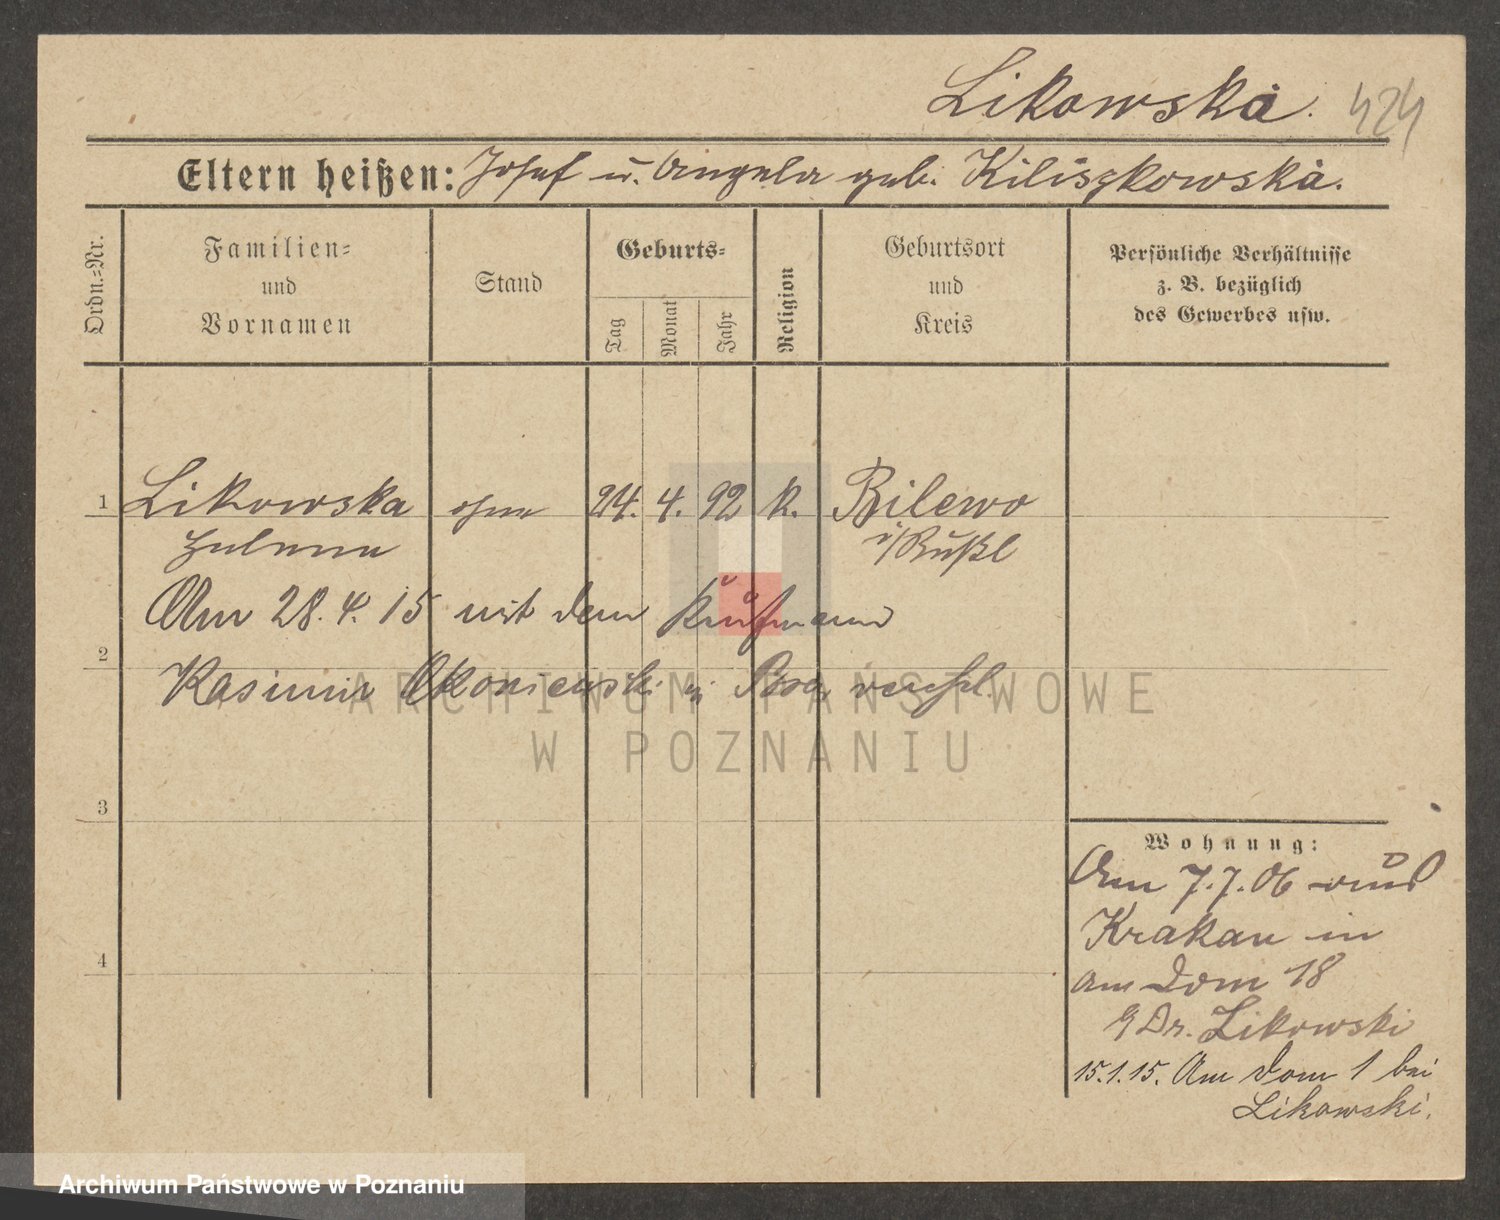 Likowska. 424
Eltern heißen: Josef u. Angela geb. Kiliszkowska.
Ordn.=Nr.
Familien=
und
Vornamen
Stand
Geburts=
Tag
Monat
Jahr
Religion
Geburtsort
und
Kreis
Persönliche Verhältnisse
z. B. bezüglich
des Gewerbes usw.
1 Likowska ohne 24. 4. 92 k. Bilewo
Helena i/Rußl
Am 28.4.15 mit dem Kaufmann
2
Kasimir Okoniewski in Posen verehl.
3
4
Wohnung:
Am 7.7.06 aus
Krakau in
am Dom 18
Dr. Likowski
15.1.15. Am Dom 1 bei
Likowski.
ARCHIWUM PAŃSTWOWE
W POZNANIU
Archiwum Państwowe w Poznaniu